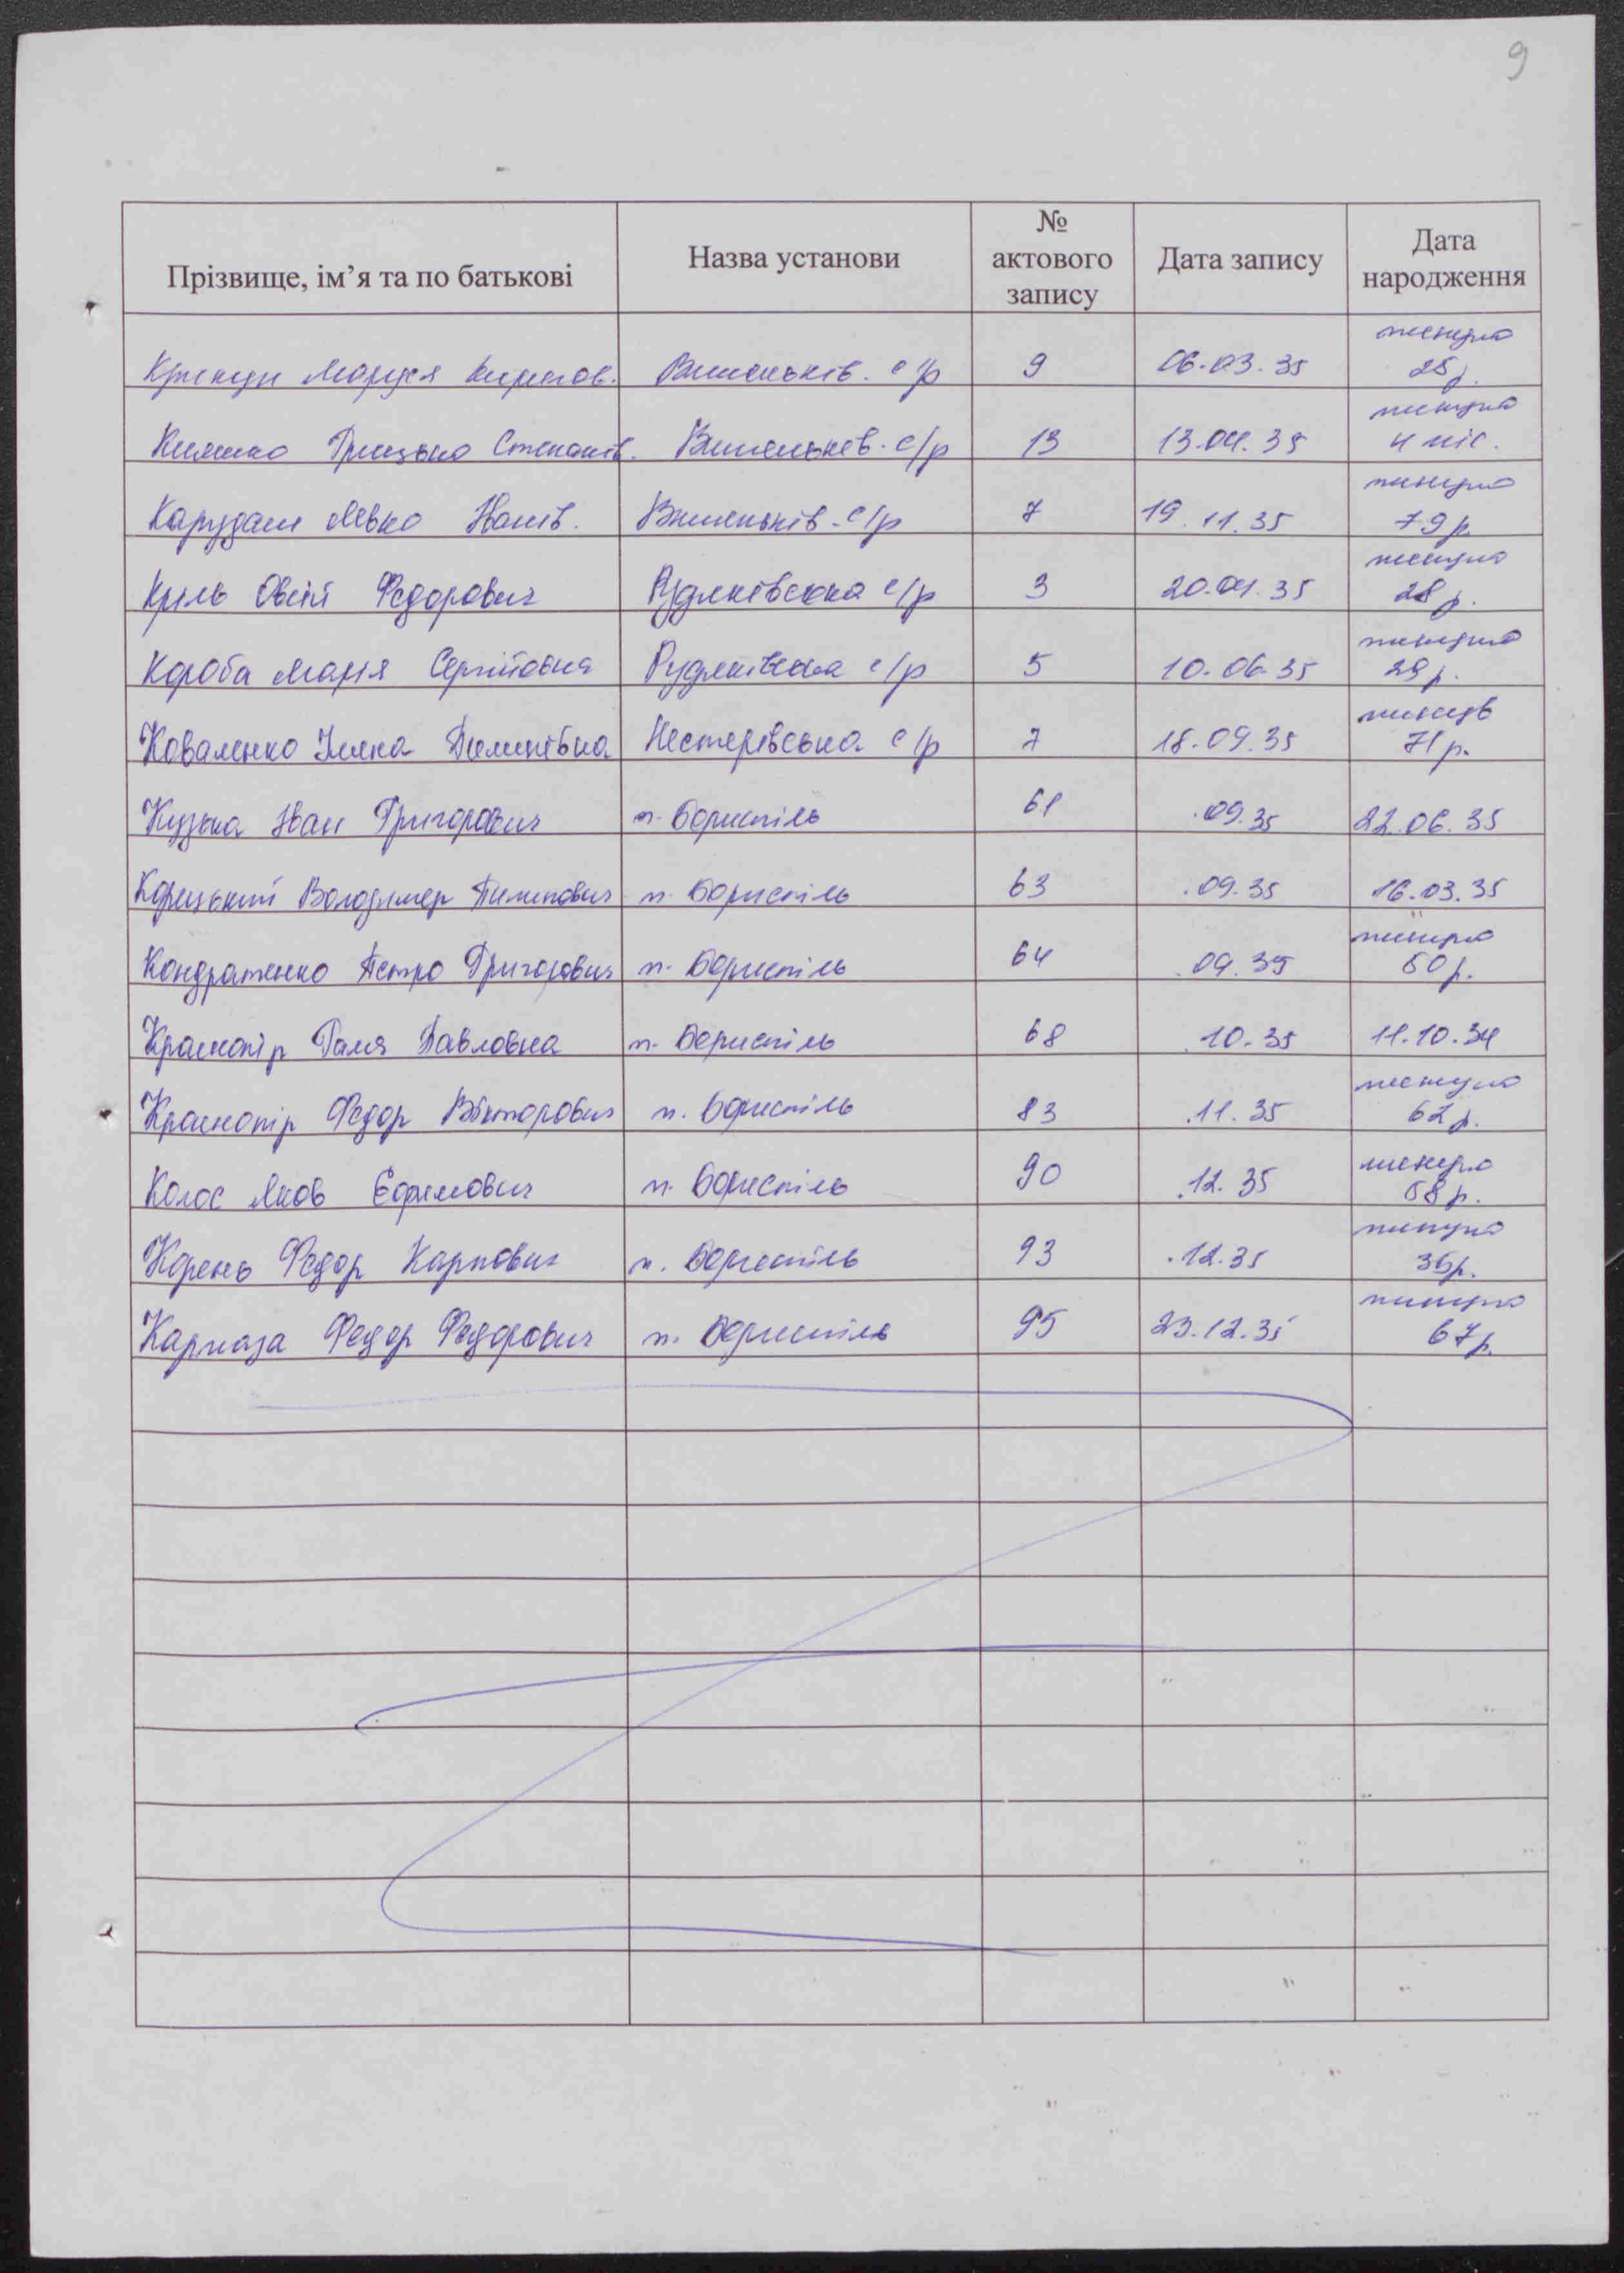 9
Прізвище, ім’я та по батькові Назва установи № актового запису Дата запису Дата народження
Маруся Вишеньків. с/р 9 06.03.35 минуло 25 р.
Кияшко Грицько Степанів. Вишеньків. с/р 13 13.04.35 минуло 4 міс.
Левко Іванів. Вишеньків. с/р 7 19.11.35 минуло 79 р.
Криль Овсій Федорович Рудяківська с/р 3 20.04.35 минуло 28 р.
Короба Марія Сергіївна Рудяківська с/р 5 10.06.35 минуло 29 р.
Коваленко Уляна Пилипівна Нестерівська с/р 7 18.09.35 минуло 71 р.
Кузька Іван Григорович м. Бориспіль 61 .09.35 22.06.35
Корецький Володимир Пилипович м. Бориспіль 63 .09.35 16.03.35
Кондратенко Петро Григорович м. Бориспіль 64 .09.35 минуло 50 р.
Краснопір Галя Павловна м. Бориспіль 68 .10.35 11.10.34
Краснопір Федор Вікторович м. Бориспіль 83 .11.35 минуло 62 р.
Колос Яков Єфимович м. Бориспіль 90 .12.35 минуло 58 р.
Корень Федор Карпович м. Бориспіль 93 .12.35 минуло 36 р.
Федор Федорович м. Бориспіль 95 23.12.35 минуло 67 р.